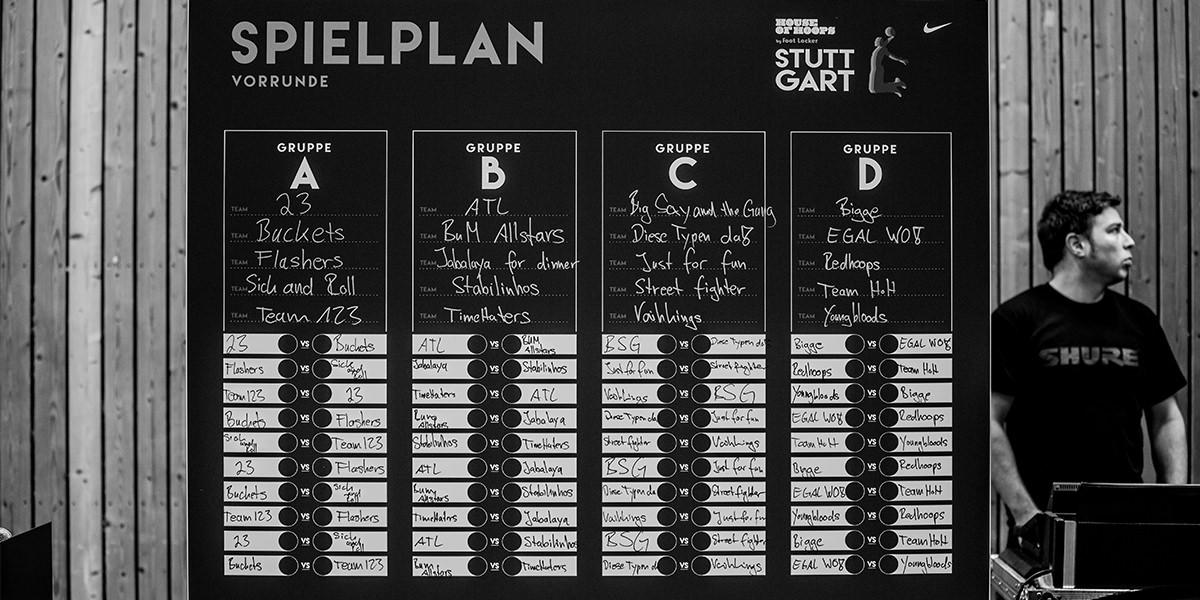 SPIELPLAN
VORRUNDE
HOUSE
OF HOOPS
by Foot Locker
STUTT
GART
GRUPPE
A
TEAM 23
TEAM Buckets
TEAM Flashers
TEAM Sich and Roll
TEAM Team 123
23 VS Buckets
Flashers VS Sich and Roll
Team 123 VS 23
Buckets VS Flashers
Sich and Roll VS Team 123
23 VS Flashers
Buckets VS Sich and Roll
Team 123 VS Flashers
23 VS Sich and Roll
Buckets VS Team 123
GRUPPE
B
TEAM ATL
TEAM BuM Allstars
TEAM Jabalaya for dinner
TEAM Stabilinhos
TEAM TimeHaters
ATL VS BuM Allstars
Jabalaya VS Stabilinhos
TimeHaters VS ATL
Bum Allstars VS Jabalaya
Stabilinhos VS TimeHaters
ATL VS Jabalaya
Bum Allstars VS Stabilinhos
TimeHaters VS Jabalaya
ATL VS Stabilinhos
Bum Allstars VS TimeHaters
GRUPPE
C
TEAM Big Say and the Gang
TEAM Diese Typen da8
TEAM Just for fun
TEAM Street fighter
TEAM Vaihings
BSG VS Diese Typen da8
Just for fun VS Street fighter
VS BSG
Diese Typen da VS Just for fun
Street fighter VS
BSG VS Just for fun
Diese Typen da VS Street fighter
VS Just for fun
BSG VS Street fighter
Diese Typen d VS
GRUPPE
D
TEAM Bigge
TEAM EGAL WO8
TEAM Redhoops
TEAM Team HoH
TEAM Youngbloods
Bigge VS EGAL WO8
Redhoops VS Team HoH
Youngbloods VS Bigge
EGAL WO8 VS Redhoops
Team HoH VS Youngbloods
Bigge VS Redhoops
EGAL WO8 VS Team HoH
Youngbloods VS Redhoops
Bigge VS Team HoH
EGAL WO8 VS Youngbloods
SHURE